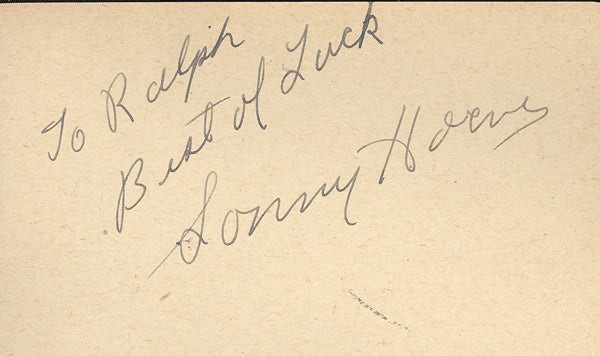 To Ralph
Best of Luck
Sonny Horne